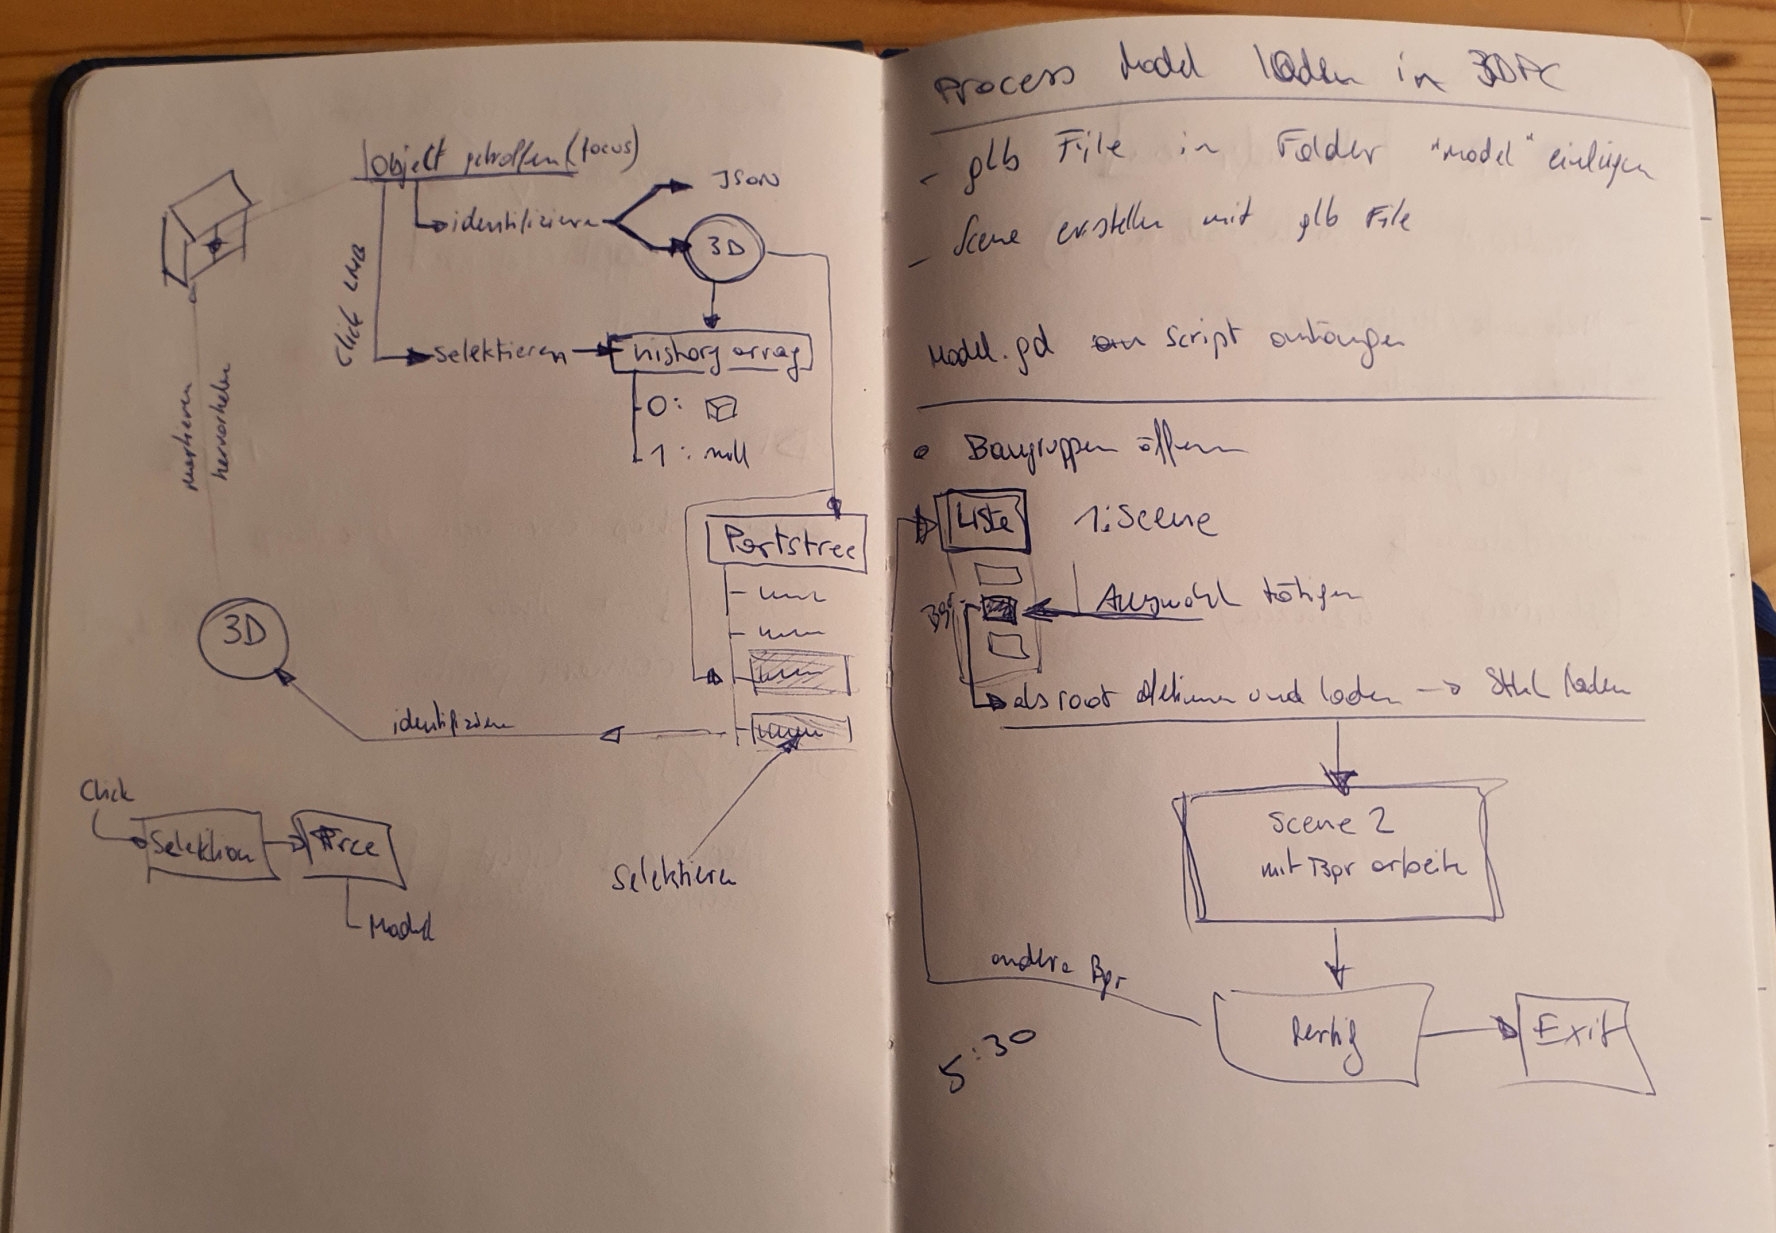 Objekt getroffen (focus)
JSON
identifizieren
3D
Click LMB
selektieren
history array
0:
1: null
markieren
hervorheben
Partstree
3D
identifizieren
Click
Selektion
Tree
Model
selektieren
Process Model laden in 3DPC
- glb File in Folder "model" einfügen
- Scene erstellen mit glb File
Model.gd an Script anhängen
Baugruppen öffnen
Liste
1: Scene
Bgr
Auswahl tätigen
als root und laden -> laden
Scene 2
mit Bgr arbeite
andere Bgr
fertig
Exit
5:30